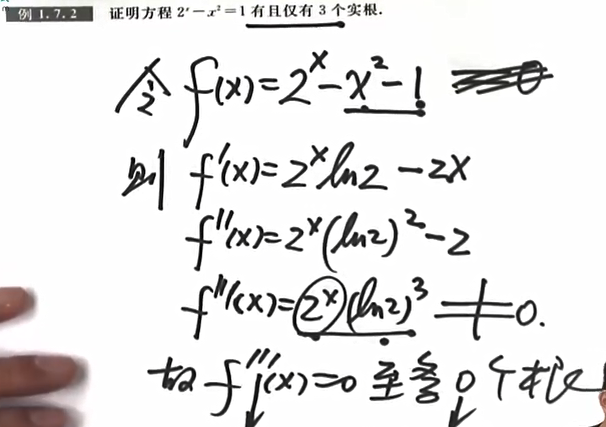 例 1.7.2 证明方程 2ˣ－x²＝1 有且仅有 3 个实根.
令 f(x)=2ˣ-x²-1
则 f'(x)=2ˣln2-2x
f''(x)=2ˣ(ln2)²-2
f'''(x)=2ˣ(ln2)³≠0.
故 f'''(x)=0 至多 0 个根